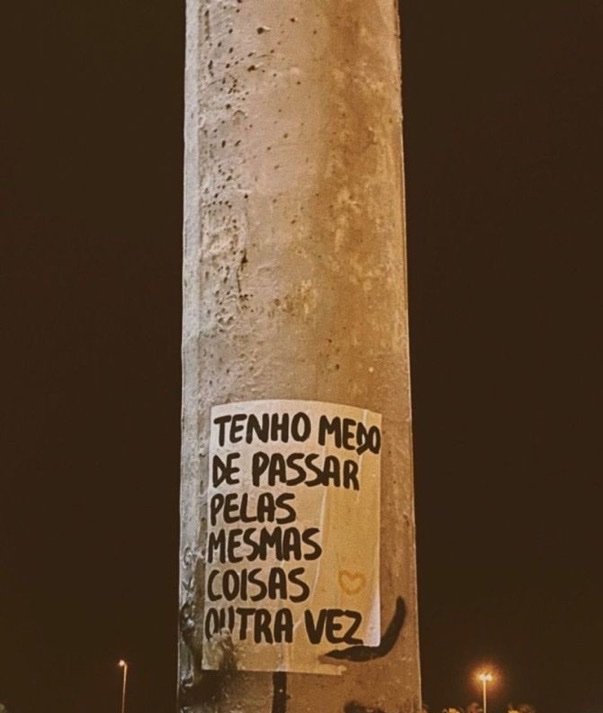 TENHO MEDO
DE PASSAR
PELAS
MESMAS
COISAS
OUTRA VEZ